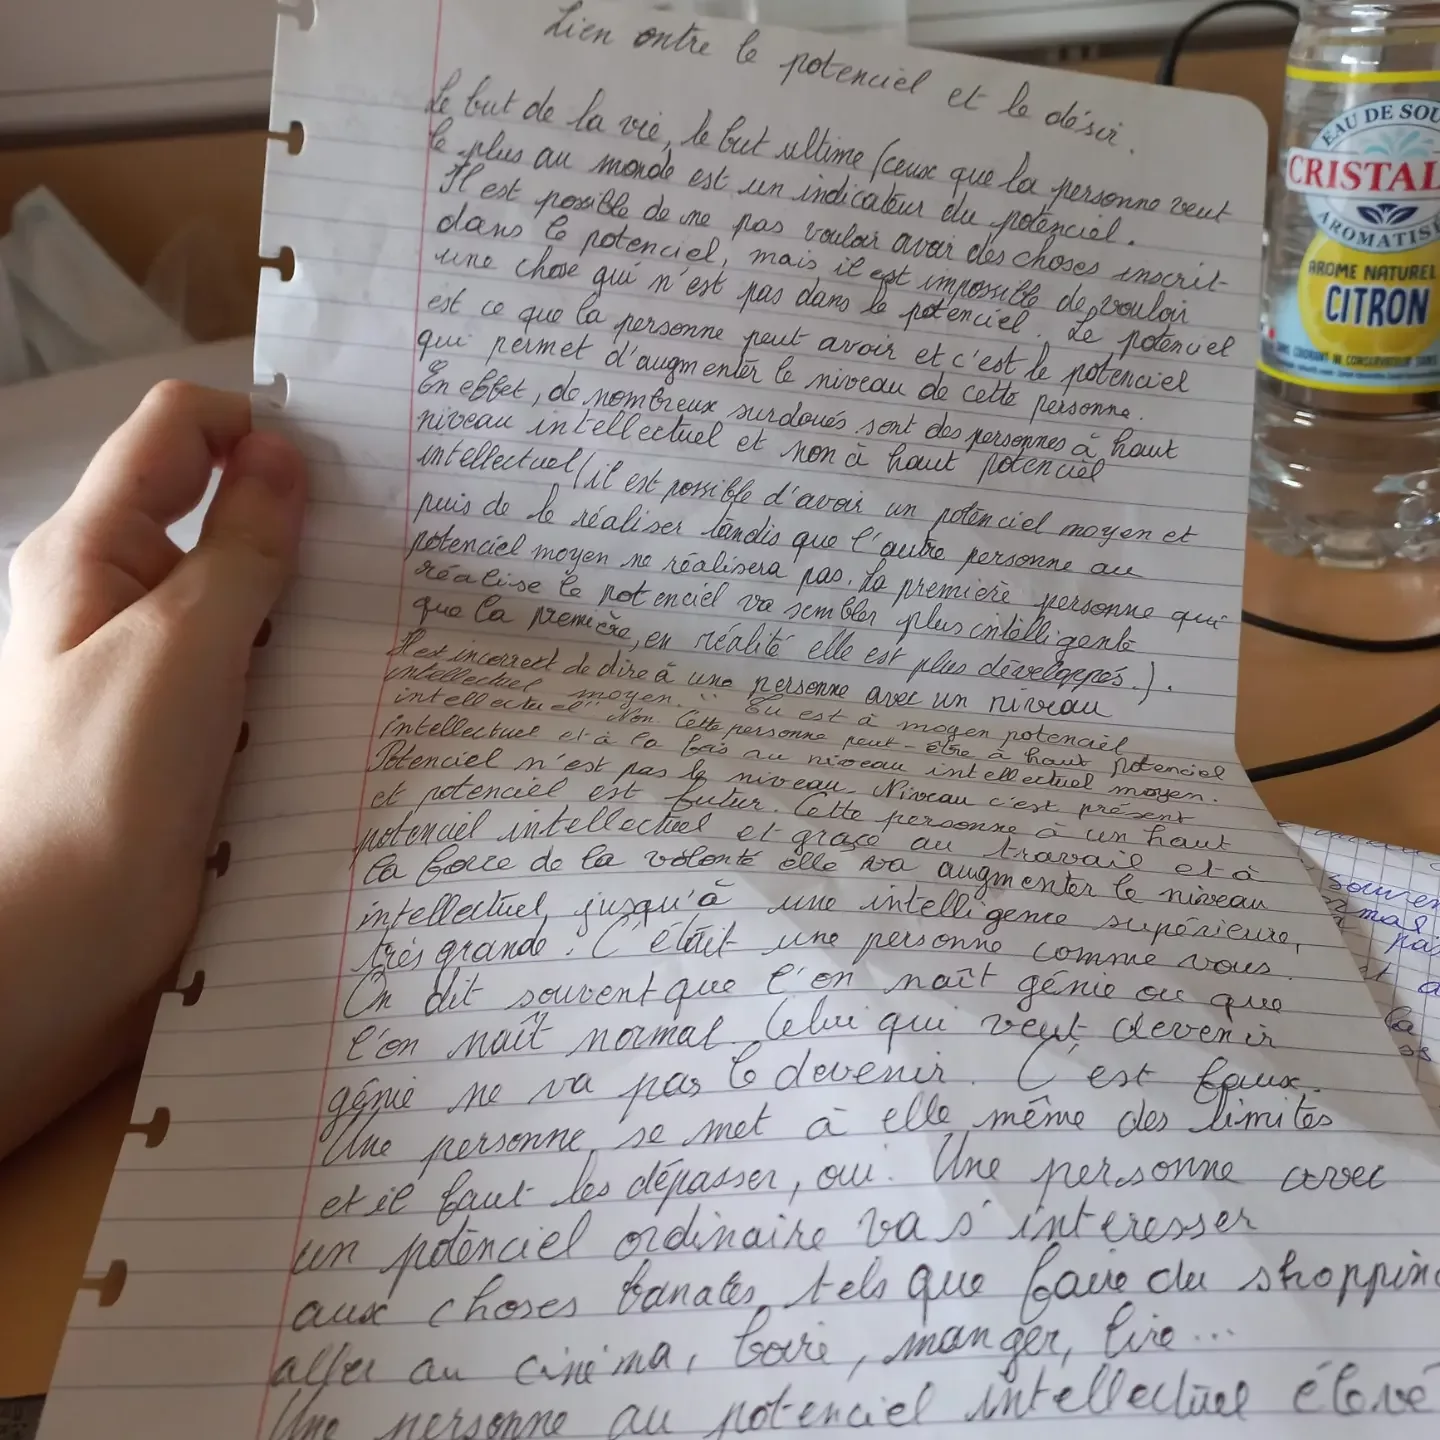 Lien entre le potenciel et le désir.
Le but de la vie, le but ultime (ceux que la personne veut
le plus au monde est un indicateur du potenciel.
Il est possible de ne pas vouloir avoir des choses inscrit-
dans le potenciel, mais il est impossible de vouloir
une chose qui n'est pas dans le potenciel. Le potenciel
est ce que la personne peut avoir et c'est le potenciel
qui permet d'augmenter le niveau de cette personne.
En effet, de nombreux surdoués sont des personnes à haut
niveau intellectuel et non à haut potenciel
intellectuel (il est possible d'avoir un potenciel moyen et
puis de le réaliser tandis que l'autre personne au
potenciel moyen ne réalisera pas. La première personne qui
réalise le potenciel va sembler plus intelligente
que la première, en réalité elle est plus développés.).
Il est incorrect de dire à une personne avec un niveau
intellectuel moyen: "Tu est à moyen potenciel
intellectuel" Non. Cette personne peut-être à haut potenciel
intellectuel et à la fois au niveau intellectuel moyen.
Potenciel n'est pas le niveau. Niveau c'est présent
et potenciel est futur. Cette personne à un haut
potenciel intellectuel et grace au travail et à
la force de la volonté elle va augmenter le niveau
intellectuel jusqu'à une intelligence supérieure,
très grande. C'était une personne comme vous.
On dit souvent que l'on naît génie ou que
l'on naît normal. Celui qui veut devenir
génie ne va pas le devenir. C'est faux.
Une personne se met à elle même des limites
et il faut les dépasser, oui. Une personne avec
un potenciel ordinaire va s'intéresser
aux choses banales, tels que faire du shopping
aller au cinéma, boire, manger, lire...
Une personne au potenciel intellectuel élevé
EAU DE SOU
CRISTAL
AROMATISÉ
AROME NATUREL
CITRON
souven
pas
la